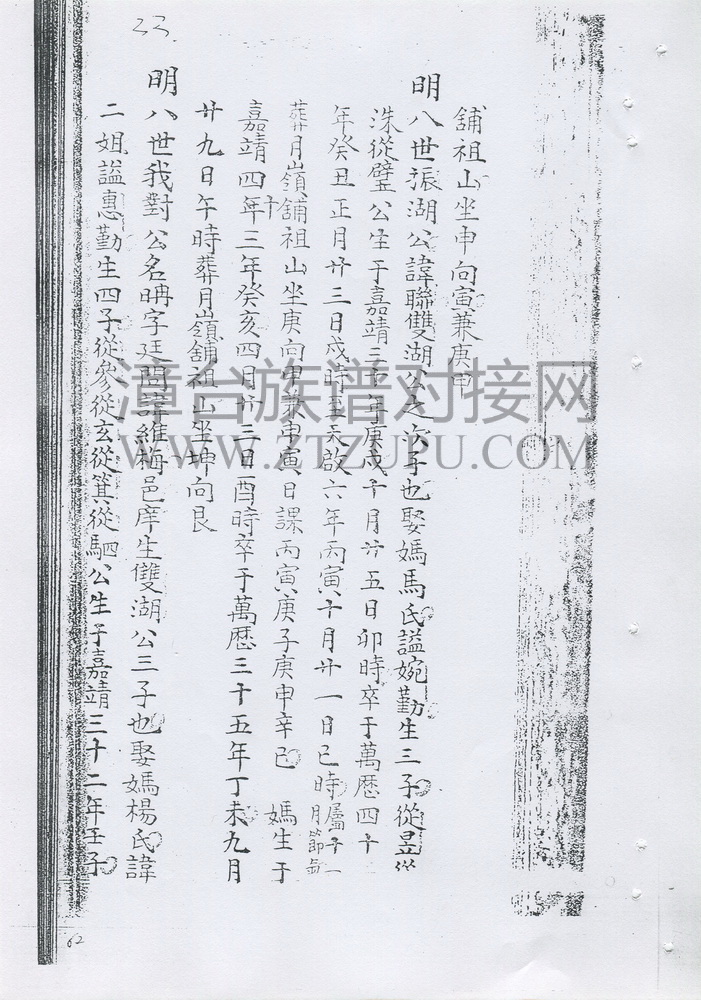 23
舖祖山坐申向寅兼庚甲
明八世張湖公諱聯雙湖公之六子也娶媽馬氏謚婉勤生三子從昱從
洙從壁公生于嘉靖二十年庚戌十月廿五日卯時卒于萬曆四十
年癸丑正月廿三日戌時至天啟六年丙寅十月廿一日巳時屬子一月節
葬月嶺舖祖山坐庚向甲兼申寅日課丙寅庚子庚申辛巳 媽生于
嘉靖四十年三年癸亥四月廿三日酉時卒于萬曆三十五年丁未九月
廿九日午時葬月嶺舖祖山坐坤向艮
明八世我對公名晽字廷問諱維梅邑庠生雙湖公三子也娶媽楊氏諱
二姐謚惠勤生四子從參從玄從箕從駟公生于嘉靖三十二年壬子
62
漳台族谱对接网
WWW.ZTZUPU.COM